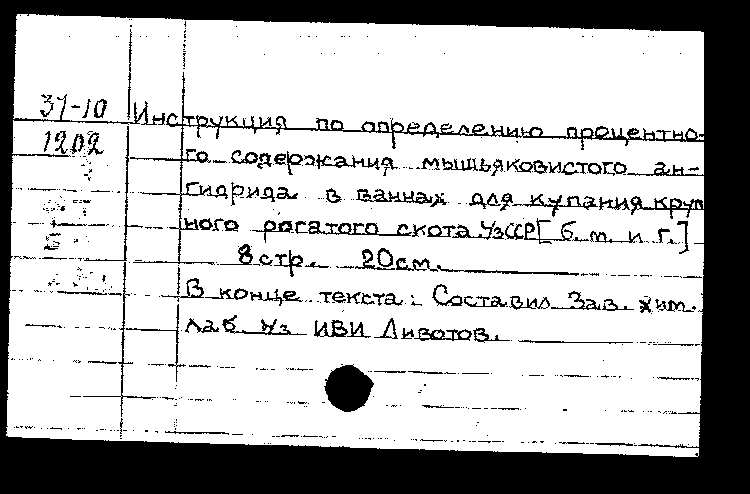 37-10 Инструкция по определению процентно-
1202 го содержания мышьяковистого ан-
гидрида в ваннах для купания круп
ного рогатого скота. УзССР [б. м. и г.]
8 стр. 20 см.
В конце текста: Составил Зав. хим.
лаб Уз ИВИ Ливотов.